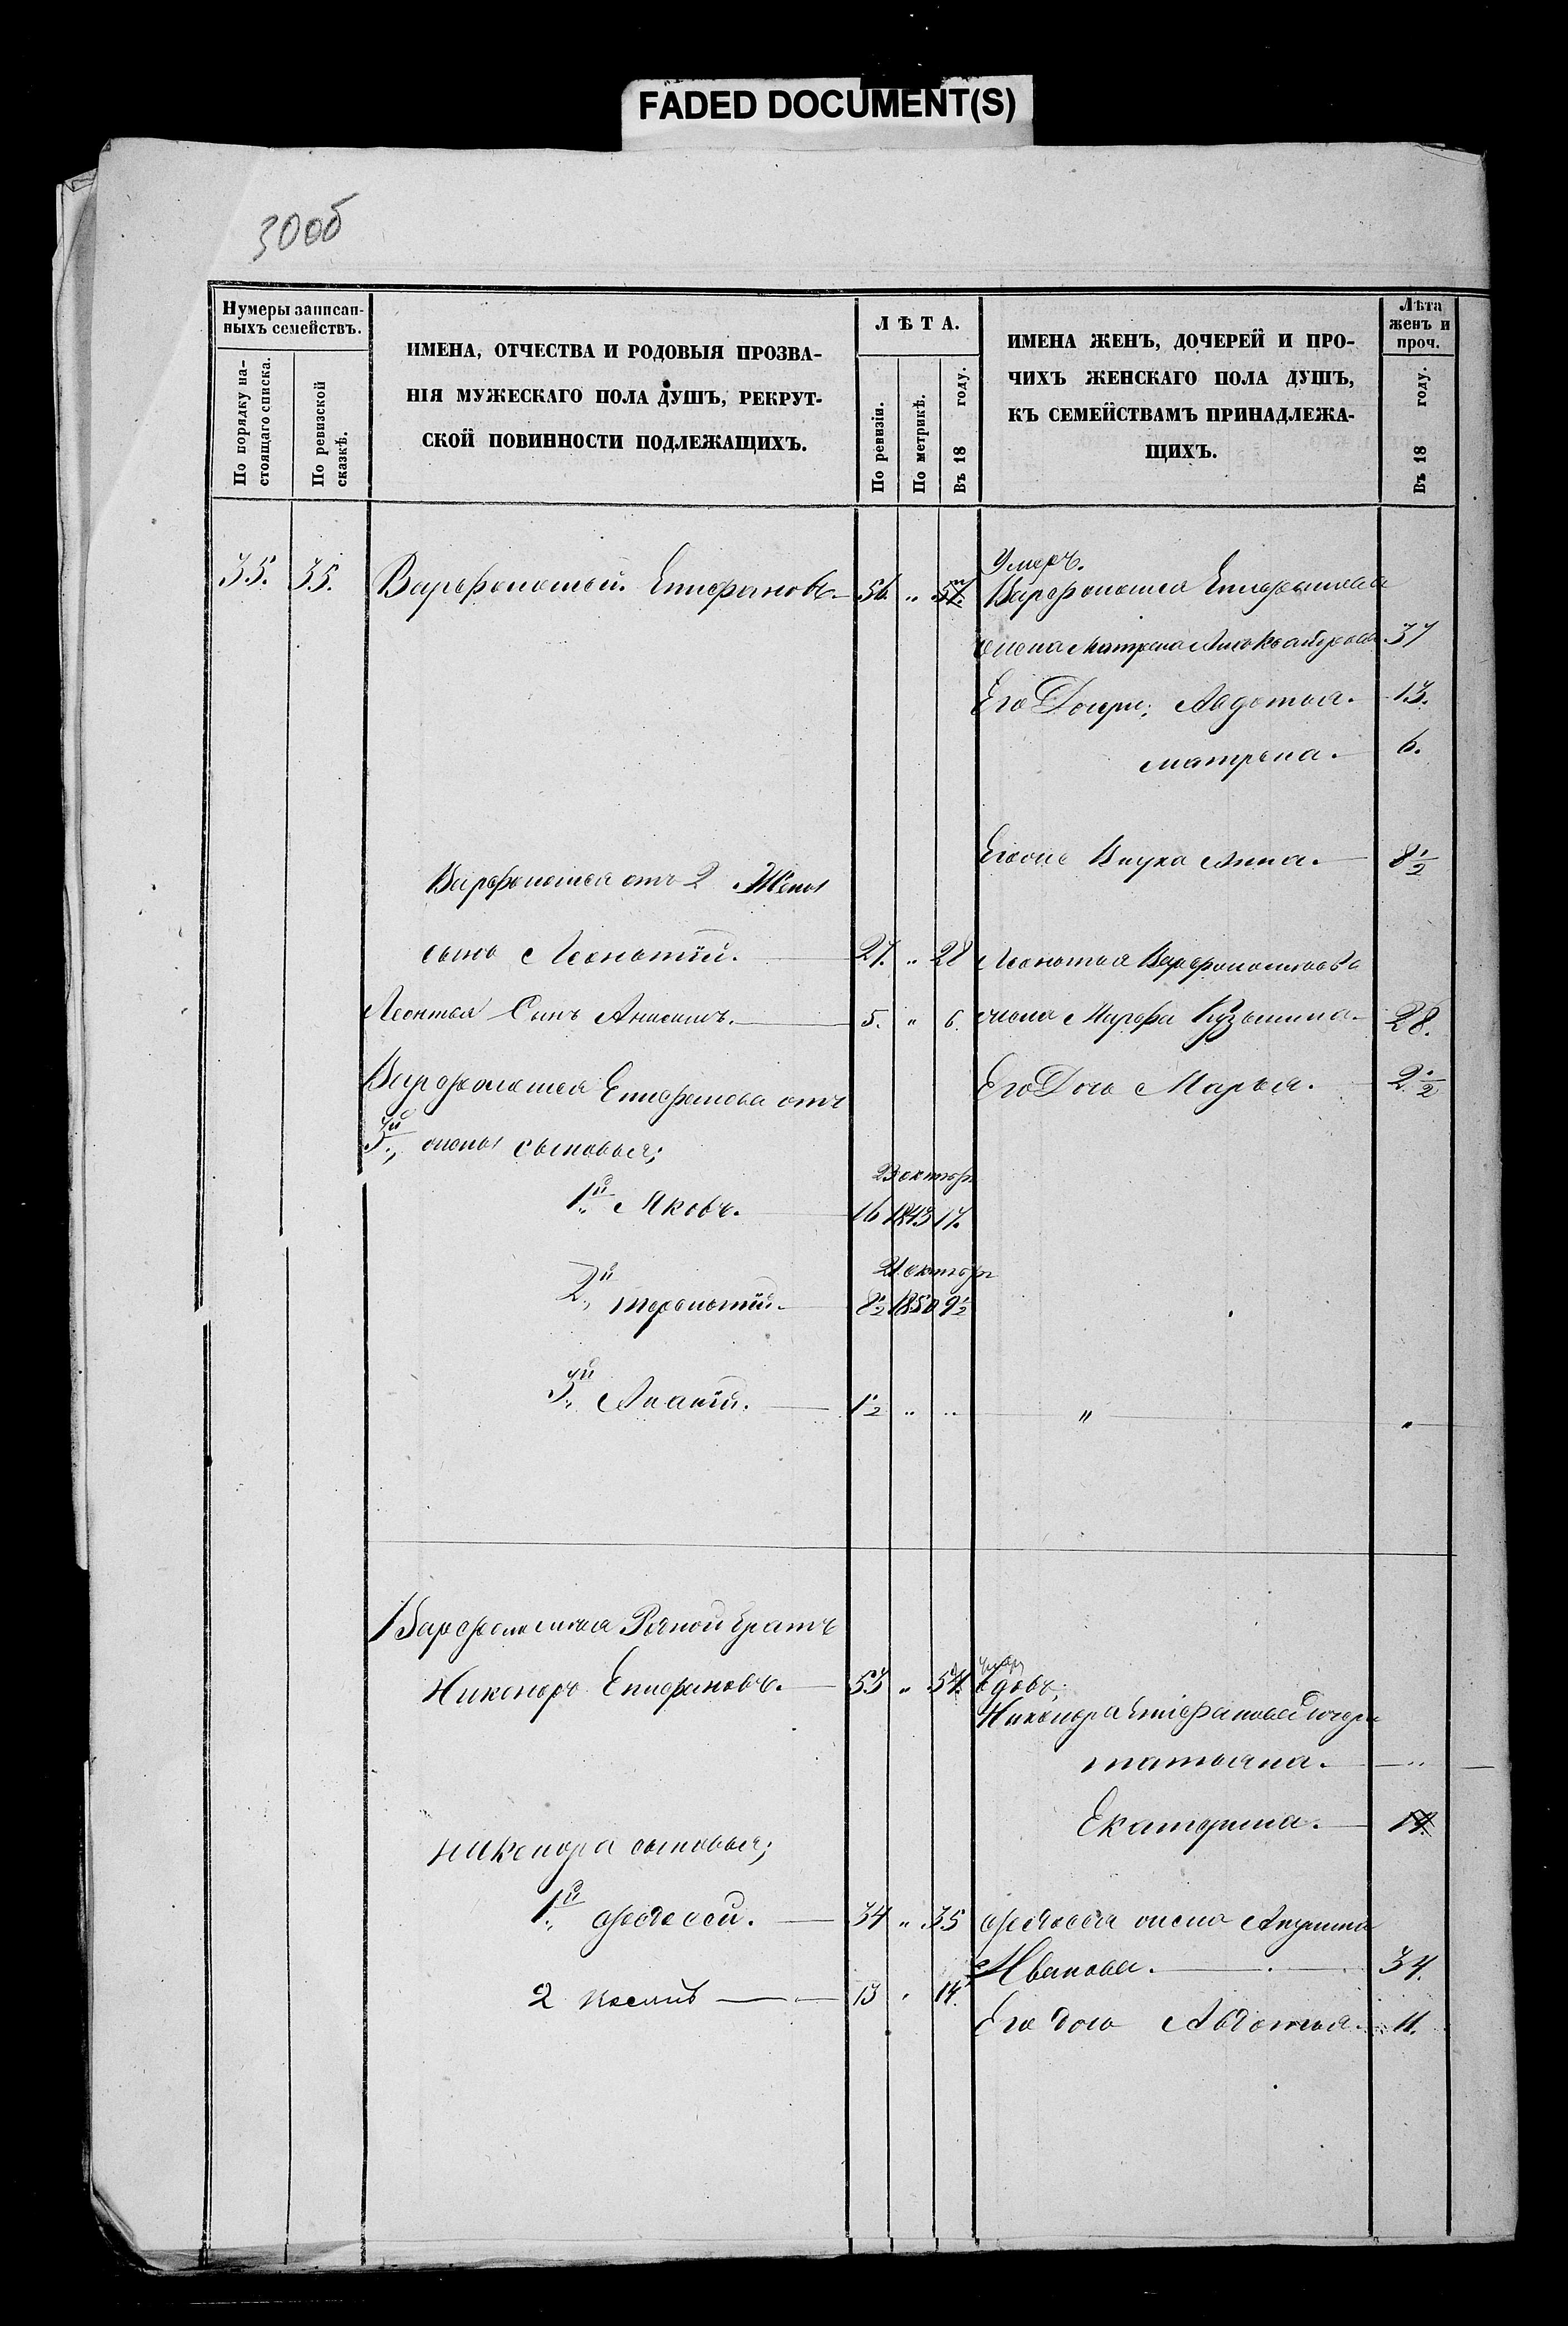 FADED DOCUMENT(S)
30об
Нумеры записан-
ныхъ семействъ.
По порядку на-
стоящаго списка.
По ревизской
сказкѣ.
ИМЕНА, ОТЧЕСТВА И РОДОВЫЯ ПРОЗВА-
НІЯ МУЖЕСКАГО ПОЛА ДУШЪ, РЕКРУТ-
СКОЙ ПОВИННОСТИ ПОДЛЕЖАЩИХЪ.
ЛѢТА.
По ревизіи.
По метрикѣ.
Въ 18 году.
ИМЕНА ЖЕНЪ, ДОЧЕРЕЙ И ПРО-
ЧИХЪ ЖЕНСКАГО ПОЛА ДУШЪ,
КЪ СЕМЕЙСТВАМЪ ПРИНАДЛЕЖА-
ЩИХЪ.
Лѣта
женъ и
проч.
Въ 18 году.
Умеръ.
35. 35. Варфоломей Епифановъ 56 „ 57. Варфоломея Епифанова
жена Матрена 37
Его Дочри; Авдотья. 13.
Матрена. 6.
Внука Анна. 8 1/2
Варфоломея отъ 2 Жены
сынъ Леонтій. 27. „ 28 Леонтья Варфоломѣева
Леонтья Сынъ Анисимъ. 5. „ 6. жена Марфа Кузьмина 28.
Варфоломея Епифанова отъ Его Дочь Марья. 2 1/2
3й жены сыновья;
23 октяр
1й Яковъ. 16 1843 17.
21 октяр
2й Терентій. 8 1/2 1850 9 1/2
3й Ананій. 1/2 „ „ „ „
Варфоломея Родной братъ
Никоноръ Епифановъ. 53 „ 54. вдовъ;
Никонора Епифанова дочери
татьяна. „
Екатерина. 14
Никонора сыновья;
1й Федосей. 34 „ 35 Федосея жена
Иванова. 34.
2 Косма 13 „ 14.
Его дочь Авдотья. 11.